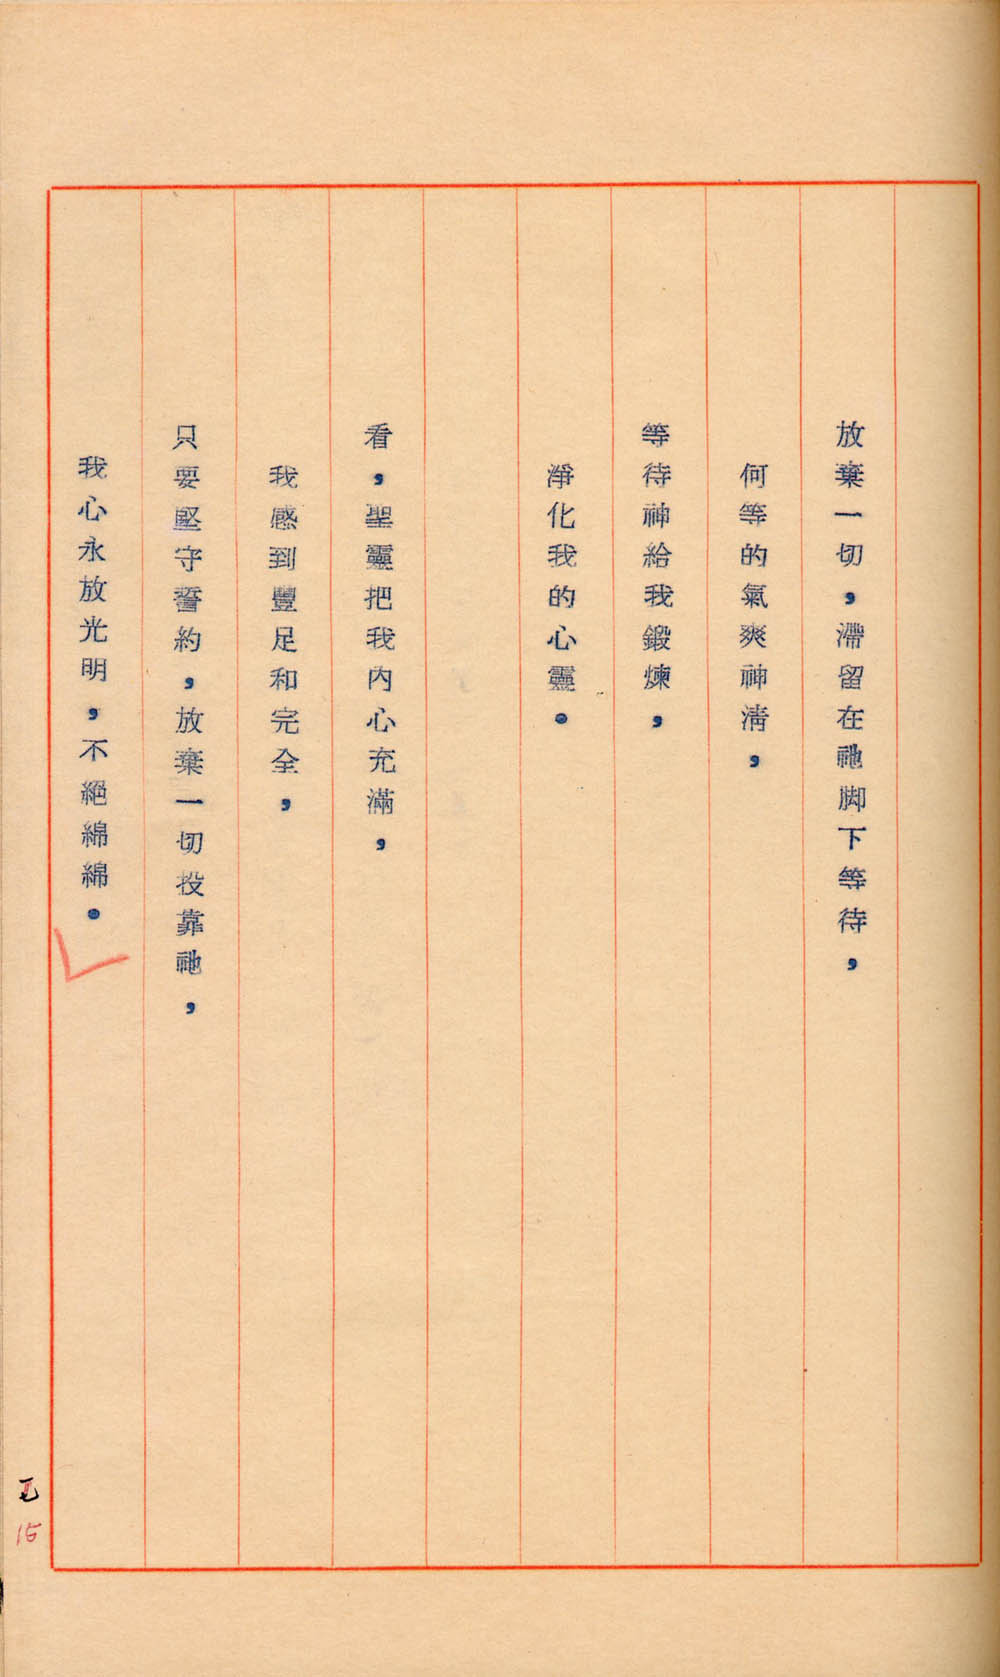 放棄一切，滯留在祂脚下等待，
何等的氣爽神清，
等待神給我鍛煉，
淨化我的心靈。
看，聖靈把我內心充滿，
我感到豐足和完全，
只要堅守誓約，放棄一切投靠祂，
我心永放光明，不絕綿綿。
15